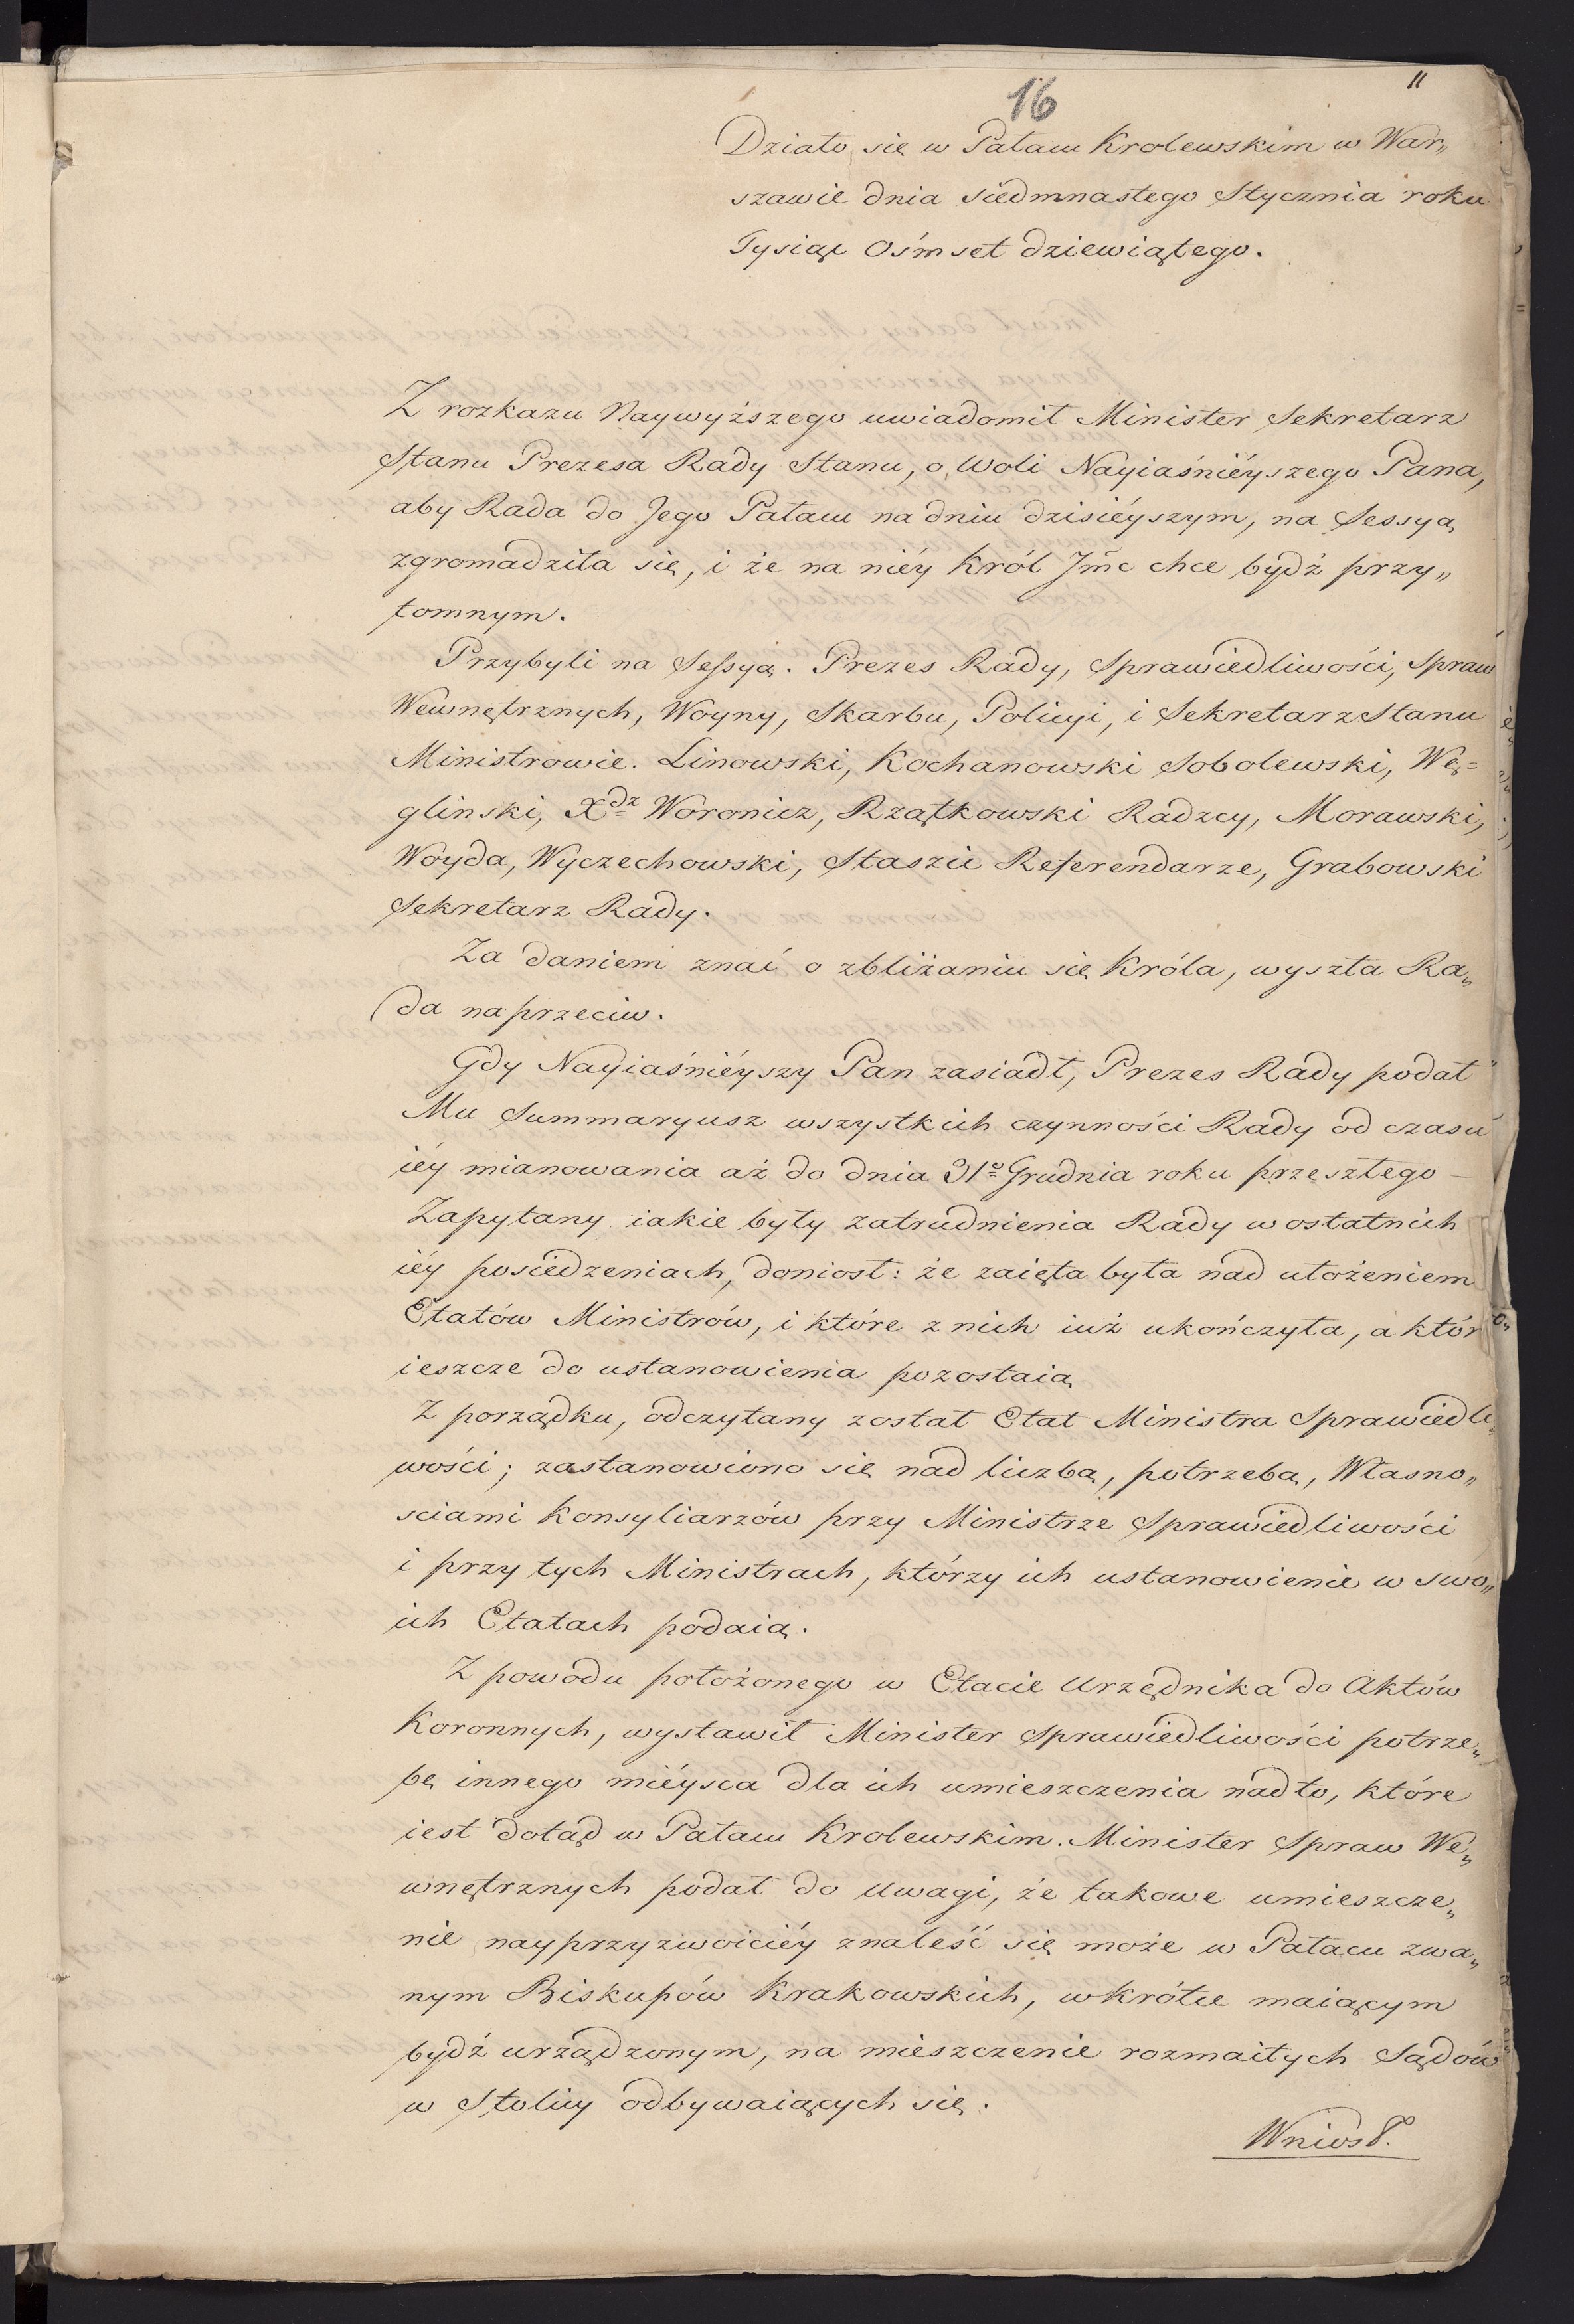 16
11
Działo się w Pałacu Krolewskim w War„
szawie dnia siedmnastego Stycznia roku
Tysiąc Ośmset dziewiątego.
Z rozkazu Naywyższego uwiadomił Minister Sekretarz
Stanu Prezesa Rady Stanu, o Woli Nayiaśniéyszego Pana,
aby Rada do Jego Pałacu na dniu dzisiéyszym, na Sessyą
zgromadziła się, i że na niéy Król Jmć chce bydź przy„
tomnym.
Przybyli na Sessyą. Prezes Rady, Sprawiedliwości, Spraw
Wewnętrznych, Woyny, Skarbu, Policyi, i Sekretarz Stanu
Ministrowie. Linowski, Kochanowski Sobolewski, Wę=
glinski, Xdz Woronicz, Rzątkowski Radzcy, Morawski,
Woyda, Wyczechowski, Staszic Referendarze, Grabowski
Sekretarz Rady.
Za daniem znać o zbliżaniu się Króla, wyszła Ra„
da naprzeciw.
Gdy Nayiaśniéyszy Pan zasiadł, Prezes Rady podał
Mu Summaryusz wszystkich czynności Rady od czasu
iéy mianowania aż do dnia 31o Grudnia roku przeszłego –
Zapytany iakie były zatrudnienia Rady w ostatnich
iéy posiedzeniach, doniosł: że zaięta była nad ułożeniem
Etatów Ministrów, i które z nich iuż ukończyła, a któr
ieszcze do ustanowienia pozostaią
Z porządku, odczytany został Etat Ministra Sprawiedli„
wości; zastanowiono się nad liczbą, potrzebą, Własno„
sciami Konsyliarzów przy Ministrze Sprawiedliwości
i przy tych Ministrach, którzy ich ustanowienie w swo„
ich Etatach podaią.
Z powodu położonego w Etacie Urzędnika do Aktów
Koronnych, wystawił Minister Sprawiedliwości potrze„
bę innego miéysca dla ich umieszczenia nad to, które
iest dotąd w Pałacu Krolewskim. Minister Spraw We„
wnętrznych podał do Uwagi, że takowe umieszcze„
nie nayprzyzwoiciéy znaleść się może w Pałacu zwa„
nym Biskupów Krakowskich, wkrótce maiącym
bydź urządzonym, na mieszczenie rozmaitych Sądów
w Stolicy odbywaiących się.
Wniosł.